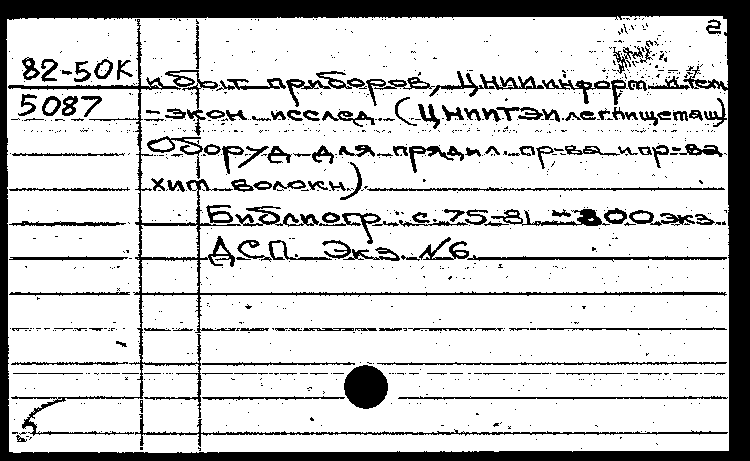 2.
82-50К
5087
и быт. приборов, ЦНИИ информ и тех
-экон. исслед. (ЦНИИТЭИлегпищемаш)
Оборуд. для прядил. пр-ва и пр-ва
хит волокн)
Библиогр.: с. 75-81 - 800 экз.
ДСП. Экз. №6.
5